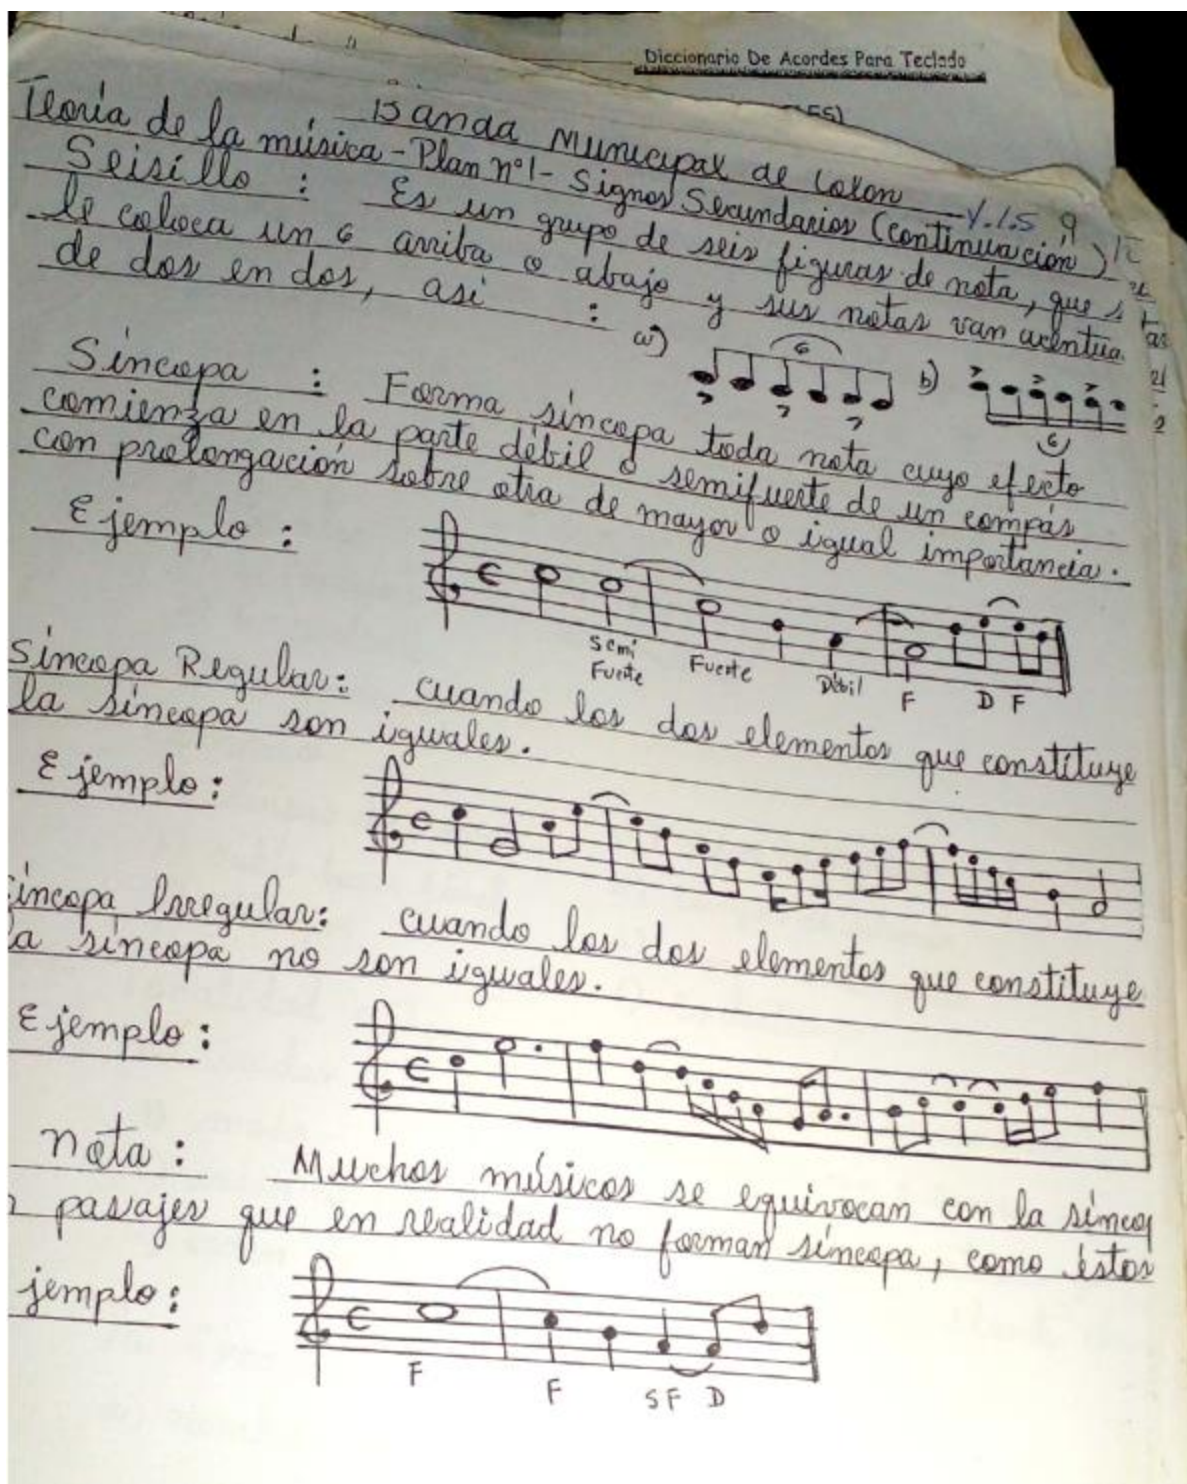 Diccionario De Acordes Para Teclado
Banda Municipal de Colon
Teoría de la música - Plan nº1 - Signos Secundarios (continuación)
Y.1.5 9
Seisillo : Es un grupo de seis figuras de nota, que s
le coloca un 6 arriba o abajo y sus notas van acentua
de dos en dos, así :
a) 6 b) 6
Síncopa : Forma síncopa toda nota cuyo efecto
comienza en la parte débil o semifuerte de un compás
con prolongación sobre otra de mayor o igual importancia.
Ejemplo :
Semi Fuerte Fuerte Débil F D F
Síncopa Regular: cuando los dos elementos que constituye
la síncopa son iguales.
Ejemplo:
íncopa Irregular: cuando los dos elementos que constituye
a síncopa no son iguales.
Ejemplo:
nota : Muchos músicos se equivocan con la síncop
pasajes que en realidad no forman síncopa, como éstos
jemplo:
F F SF D